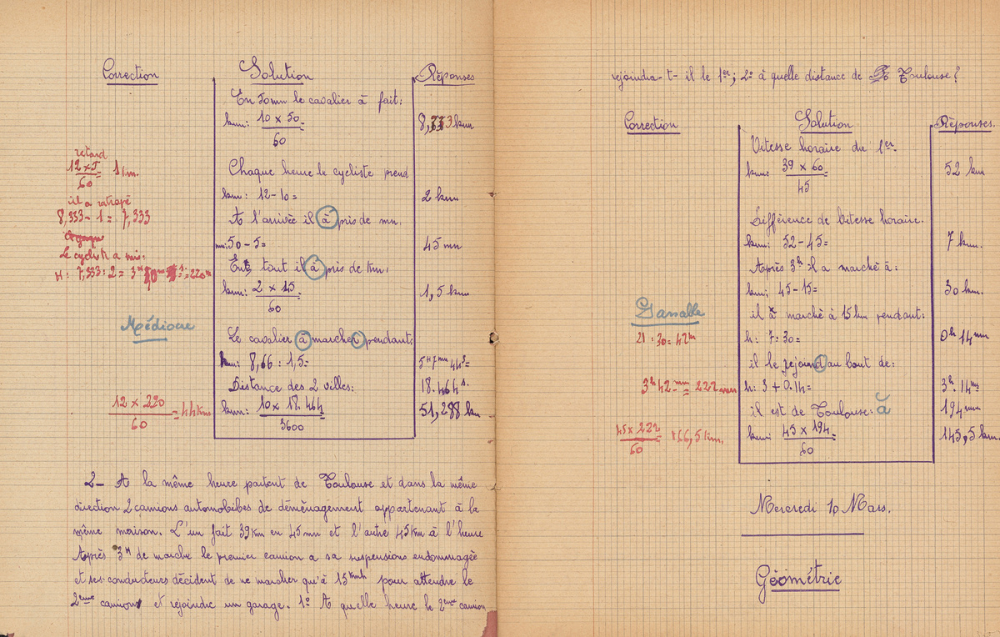 Correction
Solution
Réponses
En 50mn le cavalier à fait:
km: 10 x 50 =
60
8,333 km
retard
12 x 5 = 1 km.
60
Chaque heure le cycliste prend
km: 12-10=
2 km
il a ratrapé
8,333 - 1 = 7,333
A l'arrivée il à pris de mn.
mn: 50-5=
45 mn
Le cycliste a mis:
En tout il à pris de km:
km: 2 x 45 =
60
1,5 km
Médiocre
Le cavalier à marcher pendant:
km: 8,66 : 1,5=
Distance des 2 villes:
18.464s.
12 x 220 = 44 km
60
km: 10 x 18.464
3600
51,288 km
2- A la même heure partent de Toulouse et dans la même
direction 2 camions automobibes de déménagement appartenant à la
même maison. L'un fait 39km en 45mn et l'autre 45km à l'heure
Après 3H de marche le premier camion a sa suspensions endommagée
et ses conducteurs décident de ne marcher qu'à 15kmh pour attendre le
2eme camion et rejoindre un garage. 1º A quelle heure le 2eme camion
rejoindra-t-il le 1er; 2º à quelle distance de Toulouse?
Correction
Solution
Réponses.
Vitesse horaire du 1er.
km: 39 x 60 =
45
52 km
Différence de vitesse horaire.
km: 52-45=
7 km.
Après 3h il a marché à:
km; 45-15=
30 km.
Passable
il à marché à 15km pendant:
21:30= 42m
h: 7:30=
0h 14mn
il le rejoind au bout de:
3h 42mn = 222mn
h: 3 + 0.14=
3h. 14mn
il est de Toulouse: à
194mn
45 x 222 166,5 km.
60
km: 45 x 194 =
60
145,5 km.
Mercredi 10 Mars.
Géométrie